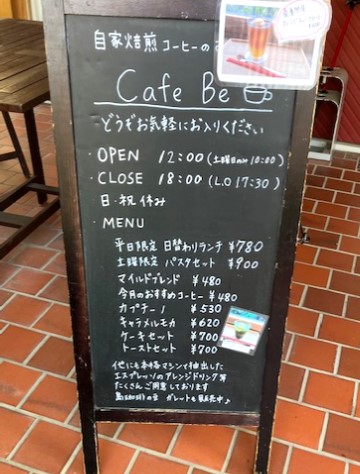 自家焙煎コーヒーの
Cafe Be
どうぞお気軽にお入りください
・OPEN 12:00(土曜日のみ10:00)
・CLOSE 18:00(L.O 17:30)
日・祝 休み
・MENU
平日限定 日替わりランチ ¥780
土曜限定 パスタセット ¥900
マイルドブレンド ¥480
今月のおすすめコーヒー ¥480
カプチーノ ¥530
キャラメルモカ ¥620
ケーキセット ¥700
トーストセット ¥700
他にも本格マシンで抽出した
エスプレッソのアレンジドリンク等
たくさんご用意しております
ガレートも販売中♪